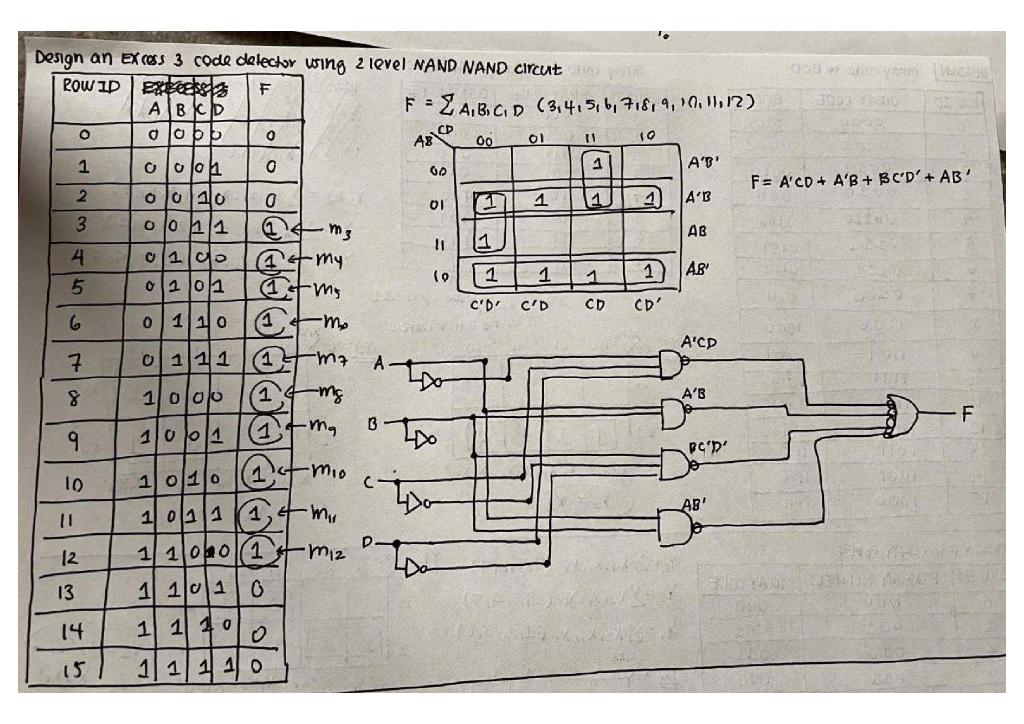 Design an Excess 3 code detector using 2 level NAND NAND circuit
ROW ID F
A B C D
0 0 0 0 0 0
1 0 0 0 1 0
2 0 0 1 0 0
3 0 0 1 1 1 m3
4 0 1 0 0 1 m4
5 0 1 0 1 1 m5
6 0 1 1 0 1 m6
7 0 1 1 1 1 m7
8 1 0 0 0 1 m8
9 1 0 0 1 1 m9
10 1 0 1 0 1 m10
11 1 0 1 1 1 m11
12 1 1 0 0 1 m12
13 1 1 0 1 0
14 1 1 1 0 0
15 1 1 1 1 0
F = Σ A,B,C,D (3,4,5,6,7,8,9,10,11,12)
AB CD 00 01 11 10
00 1 A'B'
01 1 1 1 1 A'B
11 1 AB
10 1 1 1 1 AB'
C'D' C'D CD CD'
F = A'CD + A'B + BC'D' + AB'
A
B
C
D
A'CD
A'B
BC'D'
AB'
F